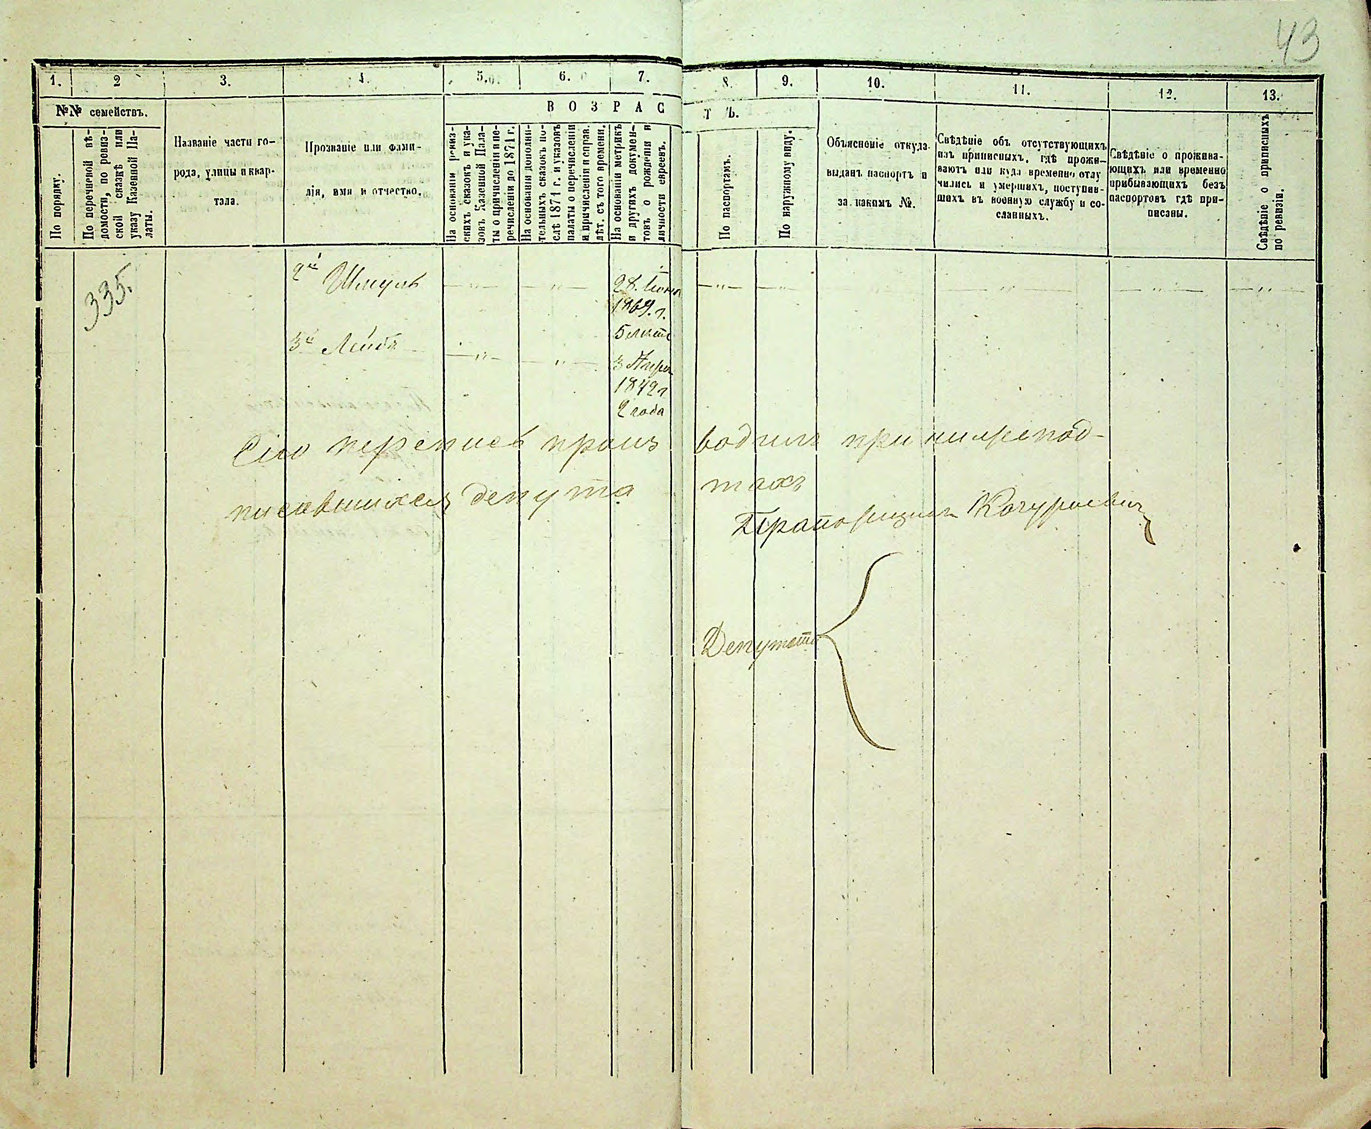 43
1. 2 3. 4. 5. 6. 7. 8. 9. 10. 11. 12. 13.
№№ семействъ.
ВОЗРАСТЪ.
По порядку.
По перечневой вѣ-
домости, по ревиз-
ской сказкѣ или
указу Казенной Па-
латы.
Названіе части го-
рода, улицы и квар-
тала.
Прозваніе или фами-
лія, имя и отчество.
На основаніи ревиз-
скихъ сказокъ и ука-
зовъ Казенной Пала-
ты о причисленіи и пе-
речисленіи до 1871 г.
На основаніи дополни-
тельныхъ сказокъ по-
слѣ 1871 г. и указовъ
палаты о перечисленіи
и причисленіи и справ.
лѣт. съ того времени.
На основаніи метрикъ
и другихъ докумен-
товъ о рожденіи и
личности евреевъ.
По паспортамъ.
По наружному виду.
Объясненіе откуда
выданъ паспортъ и
за какимъ №.
Свѣдѣніе объ отсутствующихъ
изъ приписныхъ, гдѣ прожи-
ваютъ или куда временно отлу
чились и умершихъ, поступив-
шихъ въ военную службу и со-
сланныхъ.
Свѣдѣніе о прожива-
ющихъ или временно
прибывающихъ безъ
паспортовъ гдѣ при-
писаны.
Свѣдѣніе о приписныхъ
по ревизіи.
335.
2й Шмуль — „ — — „ — 28 Іюня — „ — — „ — — „ — — „ — — „ —
1869 г.
5 лѣтъ
3й Лейба — „ — — „ — 3 Апрѣ
1872 г
2 года
Сію перепись производилъ при нижепод-
писавшихся депутатахъ
Прапорщикъ
Депутаты